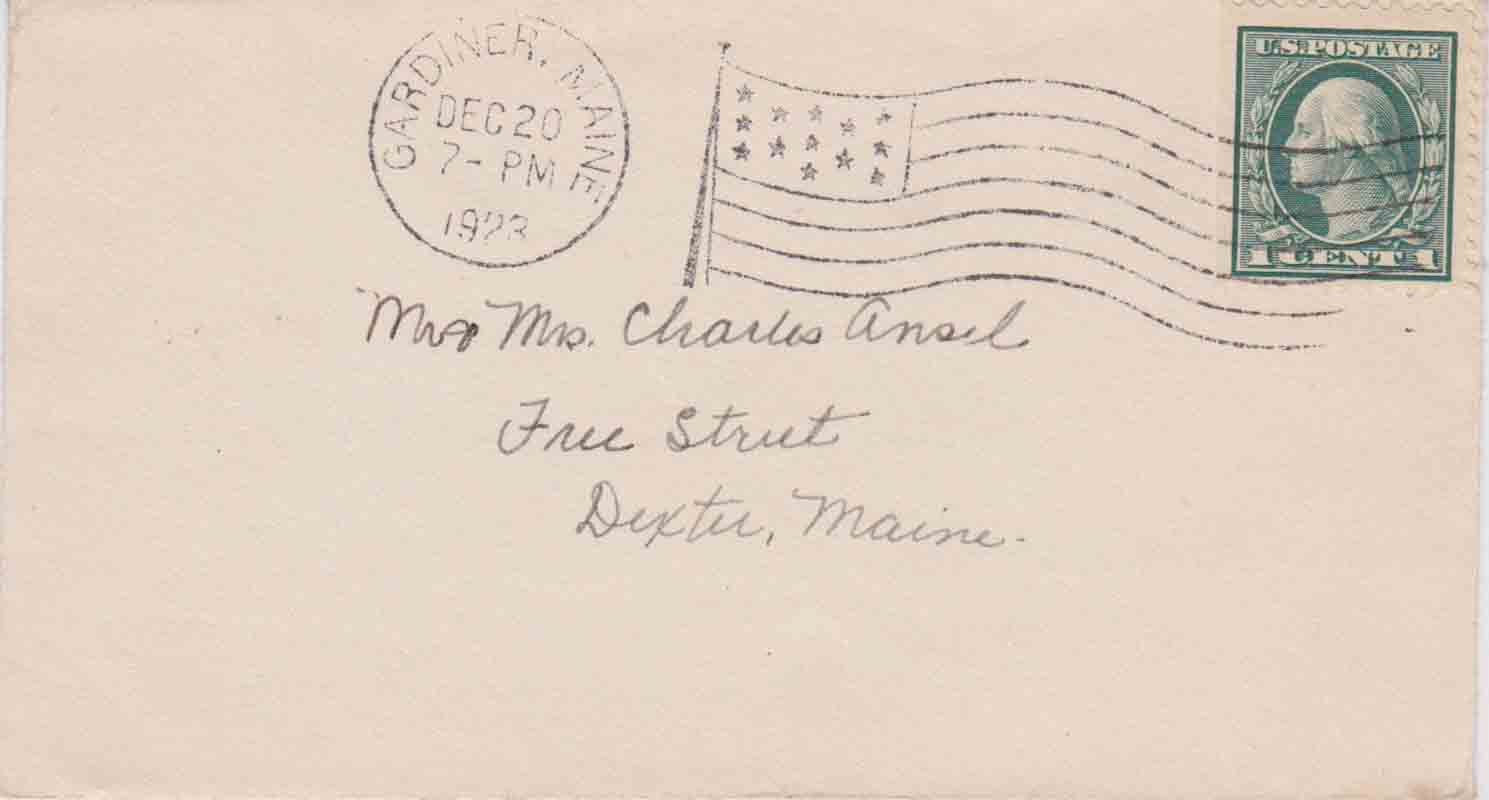 GARDINER, MAINE
DEC 20
7- PM
1923
U.S. POSTAGE
1 CENT 1
Mr & Mrs. Charles Ansel
Free Street
Dexter, Maine.